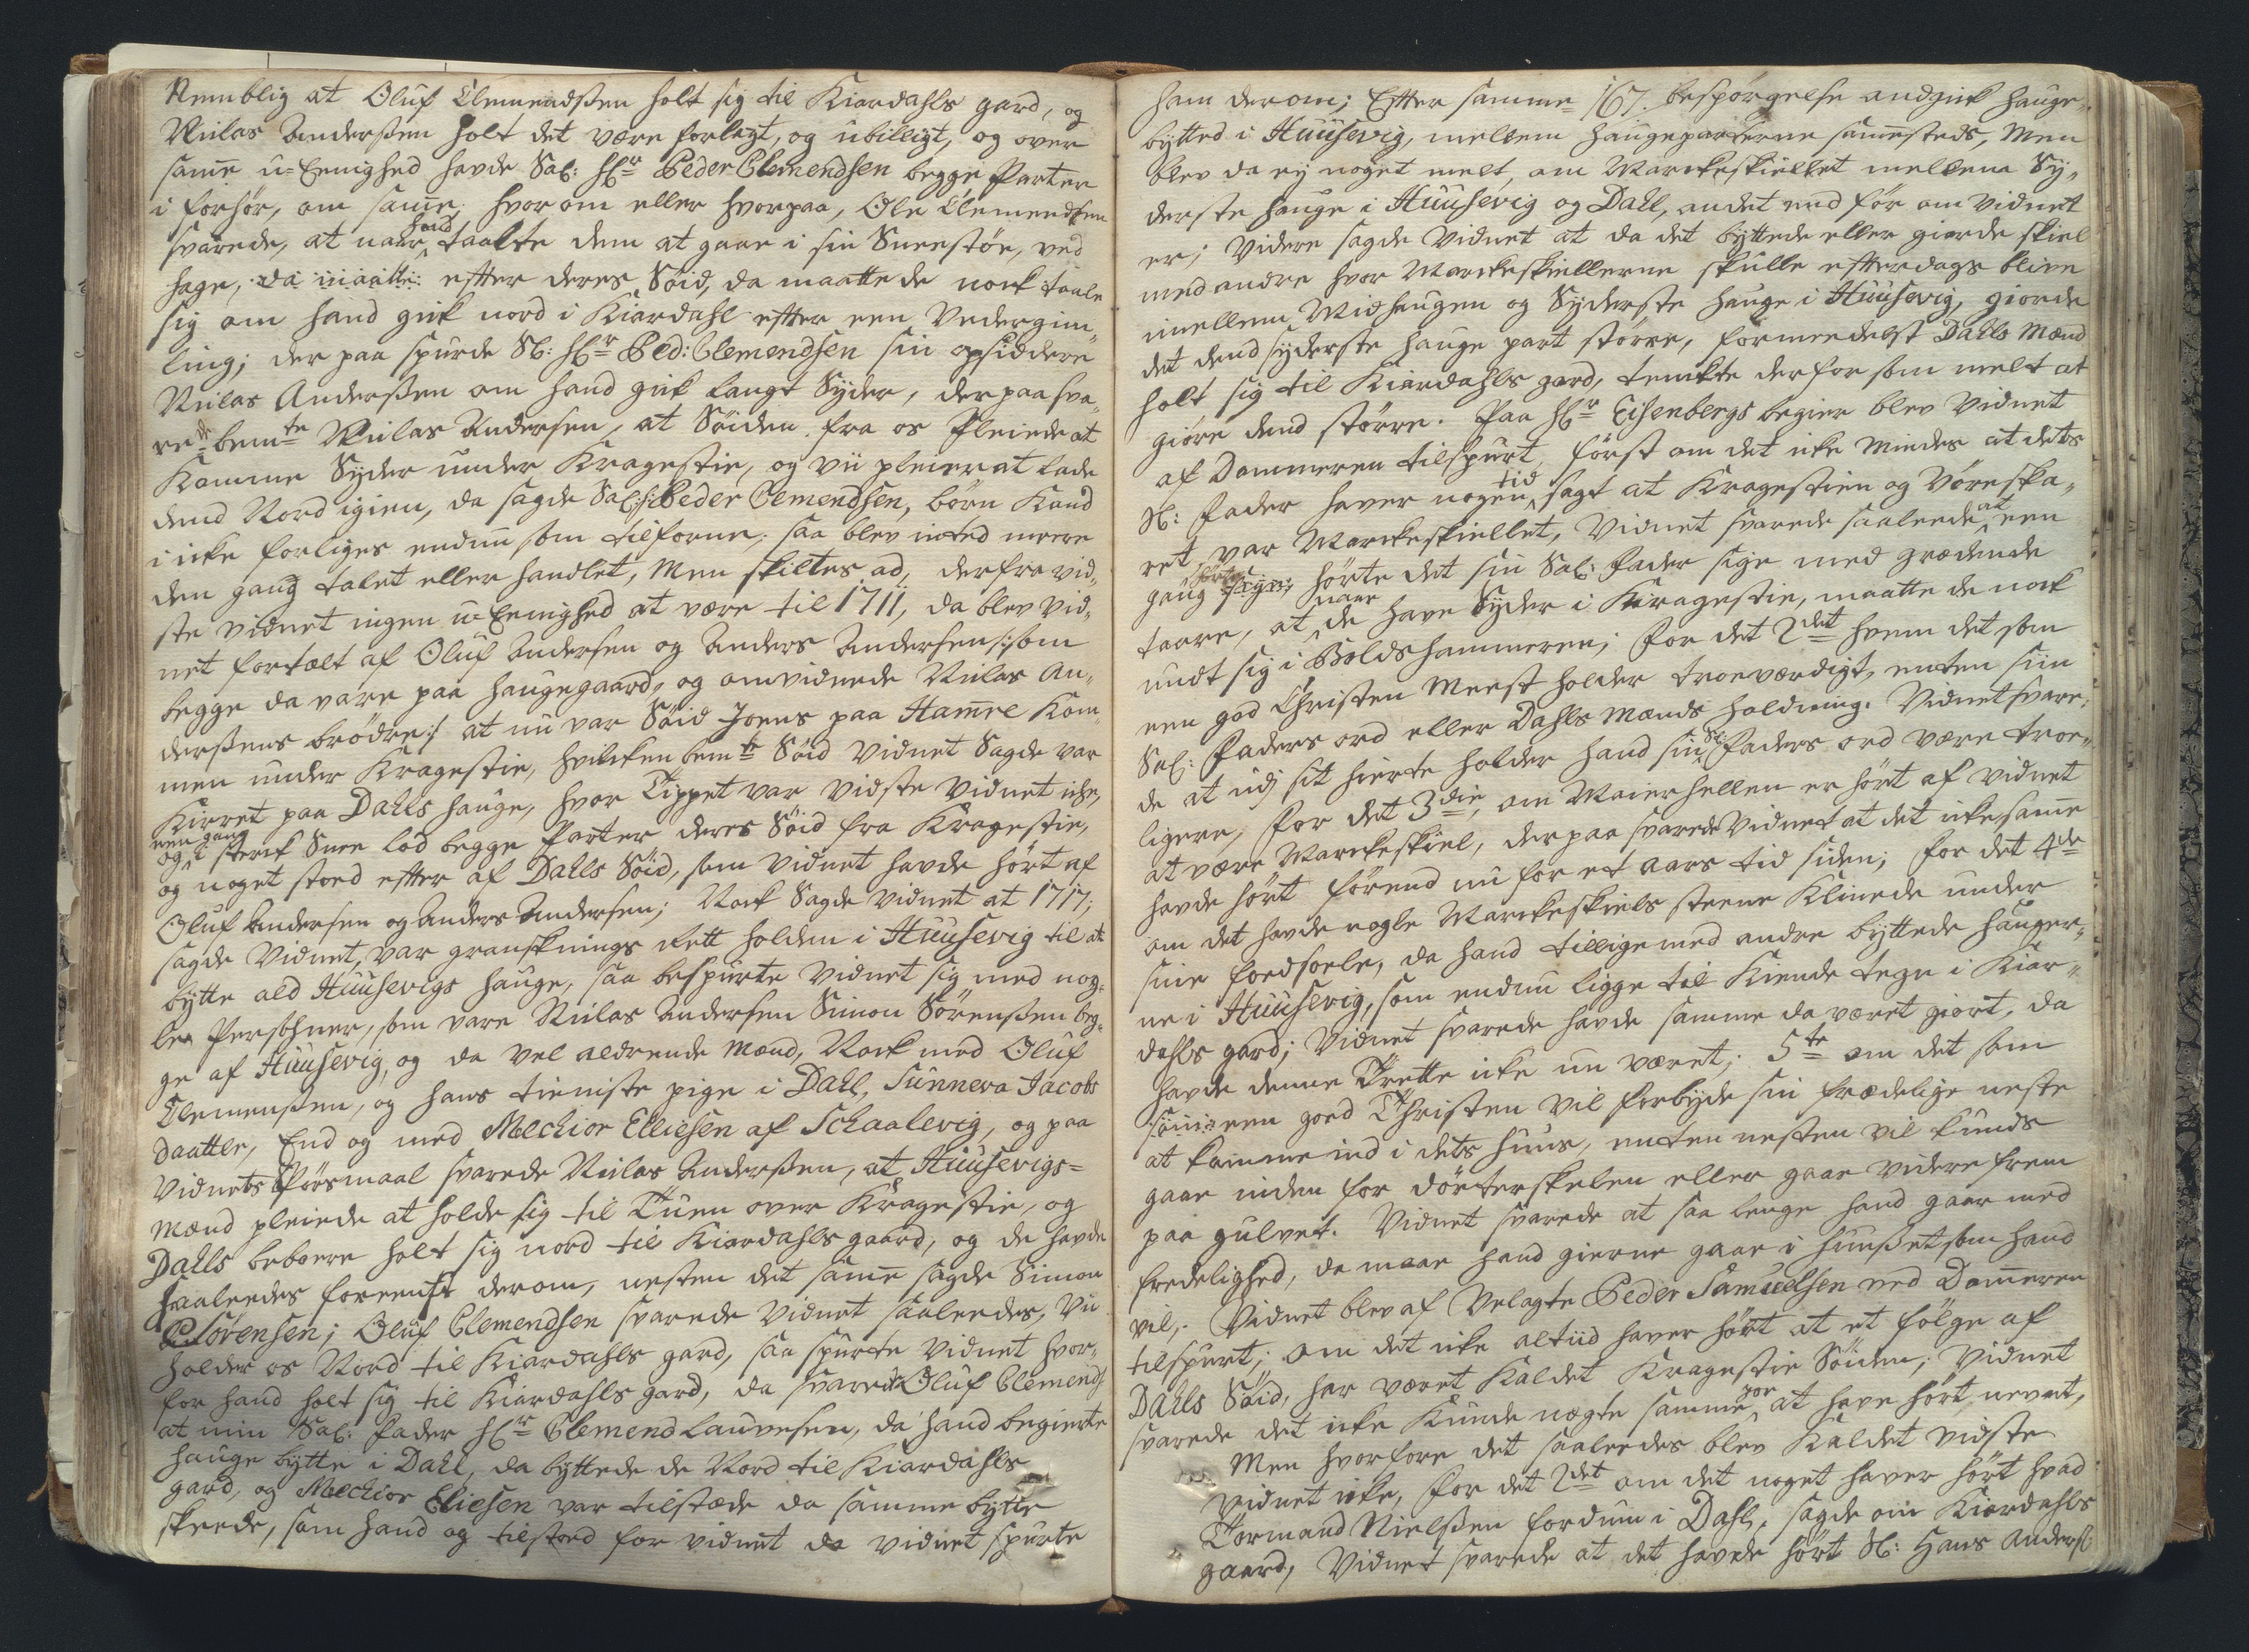 Nemblig at Oluf Clemendsen holt sig til Kiardahls gard, og
Niclas Andersen holt det være forlagt, og ubilligt, og over
samē u-Eenighed havde Sal: Hr Peder Clemendsen begge Parter
i forhør, om samē hvorom eller hvorpaa, Ole Clemendsen
svarede, at naar hand taalte dem at gaae i sin Sneestøe, ved
hage, da maatte efter deres Søid, da maatte de nock taale
sig om hand gick nord i Kiardahl efter een Vedergim„
ling; der paa spurde Sl: Hr Ped: Clemendsen sin opsiddere
Niclas Andersen om hand gick langt Syder, der paa sva„
rede bemte Niclas Andersen, at Søiden fra os Pleiede at
Komme Syder under Kragestie, og vii pleier at lade
dend Nord igien, da sagde Sal: Hr Peder Clemendsen, børn Kand
i icke forliges endnu som tilforne, saa blev inted meere
den gang talet eller handlet, Men skiltes ad, derfra vid„
ste vidnet ingen u-Eenighed at være til 1711, da blev vid„
net fortalt af Oluf Andersen og Anders Andersen /:som
begge da vare paa haugegaard, og omvidnede Niclas An„
dersens brødre:/ at nu var Søid Joens paa Hamre Kom„
men under Kragestie, hvilcken bemte Søid vidnet Sagde var
Kirret paa Dahls hauge, hvor Tippet var vidste vidnet icke,
og een gang i sterck Snee lod begge Parter deres Søid fra Kragestie,
og noget stoed efter af Dahls Søid, som vidnet havde hørt af
Oluf Andersen og Anders Andersen; Nock Sagde vidnet at 1717,
sagde Vidnet, var gransknings Rett holden i Huusevig til at
bytte ald Huusevigs hauge, saa bespurte vidnet sig med nog„
le Persohner, som vare Niclas Andersen Simon Sørensen beg„
ge af Huusevig, og da vel aldrende Mænd, Nock med Oluf
Clemensen, og hans tieniste pige i Dahl, Sunneva Jacobs
daatter, End og med Melchior Elliesen af Schaalevig, og paa
vidnets Spørsmaal svarede Niclas Andersen, at Huusevigs=
Mænd pleiede at holde sig til Tuen over Kragestie, og
Dahls beboere holt sig nord til Kiardahls gaard, og de havde
saaleedes foreenet derom, nesten det samē sagde Simon
Sørensen; Oluf Clemendsen svarede vidnet saaleedes, Vii
holder os Nord til Kiardahls gard, saa spurte vidnet hvor„
for hand holt sig til Kiardahls gard, da svarede Oluf Clemends
at min Sal: Fader Hr Clemend Lauvesen, da hand begierte
hauge bytte i Dahl, da byttede de Nord til Kiardahls
gard, og Melchior Eliesen var tilstæde da samme bytte
skeede, som hand og tilstoed for vidnet da vidnet spurte
ham derom; Efter samme bespørgelse andgick hauge„
bytted i Huusevig, mellem haugeparterne sammesteds, Men
blev da ey noget melt, om Marckeskiellet mellem Sy„
derste hauge i Huusevig og Dahl, andet end før om vidnet
er; Videre sagde Vidnet at da det byttede eller giorde skiel
med andre hvor Marckeskiellerne skulle efterdags blive
imellem Midhaugen og Syderste hauge i Huusevig, giorde
det dend syderste hauge part større, formeedelst Dahls Mænd
holt sig til Kiardahls gard, tenckte derfor som melt at
giøre dend større. Paa Hr Eisenbergs begier blev Vidnet
af Dommeren tilspurt, først om det icke Mindes at dets
Sl: Fader haver nogen tid sagt at Kragestien og Vøreska„
ret var Marckeskiellet, Vidnet svarede saaleede at een
gang hørte det sin Sal: Fader sige med grædende
taare, at naar de have Syder i Kragestie, maatte de nock
undt sig i Boldshammeren; For det 2det hvem det som
een god Christen Meest holder troeværdigt, enten sin
Sal: Faders ord eller Dahls Mænds holdning. Vidnet svare„
de at udj sit hierte holder hand sin Sl: Faders ord være troe„
ligere, For det 3die, om Maierhellen er hørt af vidnet
at være Marckeskiel, derpaa svarede Vidnet at det icke samē
havde hørt førend nu for et aars tid siden; For det 4de
om det havde nogle Marckeskiels steene Klinede under
sine foedsoele, da hand tillige med andre byttede hauger„
ne i Huusevig, som endnu ligge til Kiende tegn i Kiar„
dahls gard; Vidnet svarede havde samme da været giort, da
havde denne Trette icke nu været; 5te om det som
een goed Christen vil forbyde sin frædelige neste
at komme ind i dets huus, enten nesten vil kunds
gaae inden for dørterskelen eller gaae videre frem
paa gulvet. Vidnet svarede at saa lenge hand gaar med
fredelighed, da maae hand gierne gaae i huuset som hand
vil,. Vidnet blev af Velagte Peder Samuelsen ved Dom̄eren
tilspurt; om det icke altiid haver hørt at et følge af
Dahls Søid, har været Kaldet Kragestie Søiden; Vidnet
svarede det icke Kunde nægte samme jo at have hørt nevnt,
Men hvorfore det saaleedes blev Kaldet vidste
Vidnet icke, For det 2det om det noget haver hørt hvad
Tormand Nielsen fordum i Dahl, sagde om Kiardahls
gaard, Vidnet svarede at det havde hørt Sl: Hans Anders: